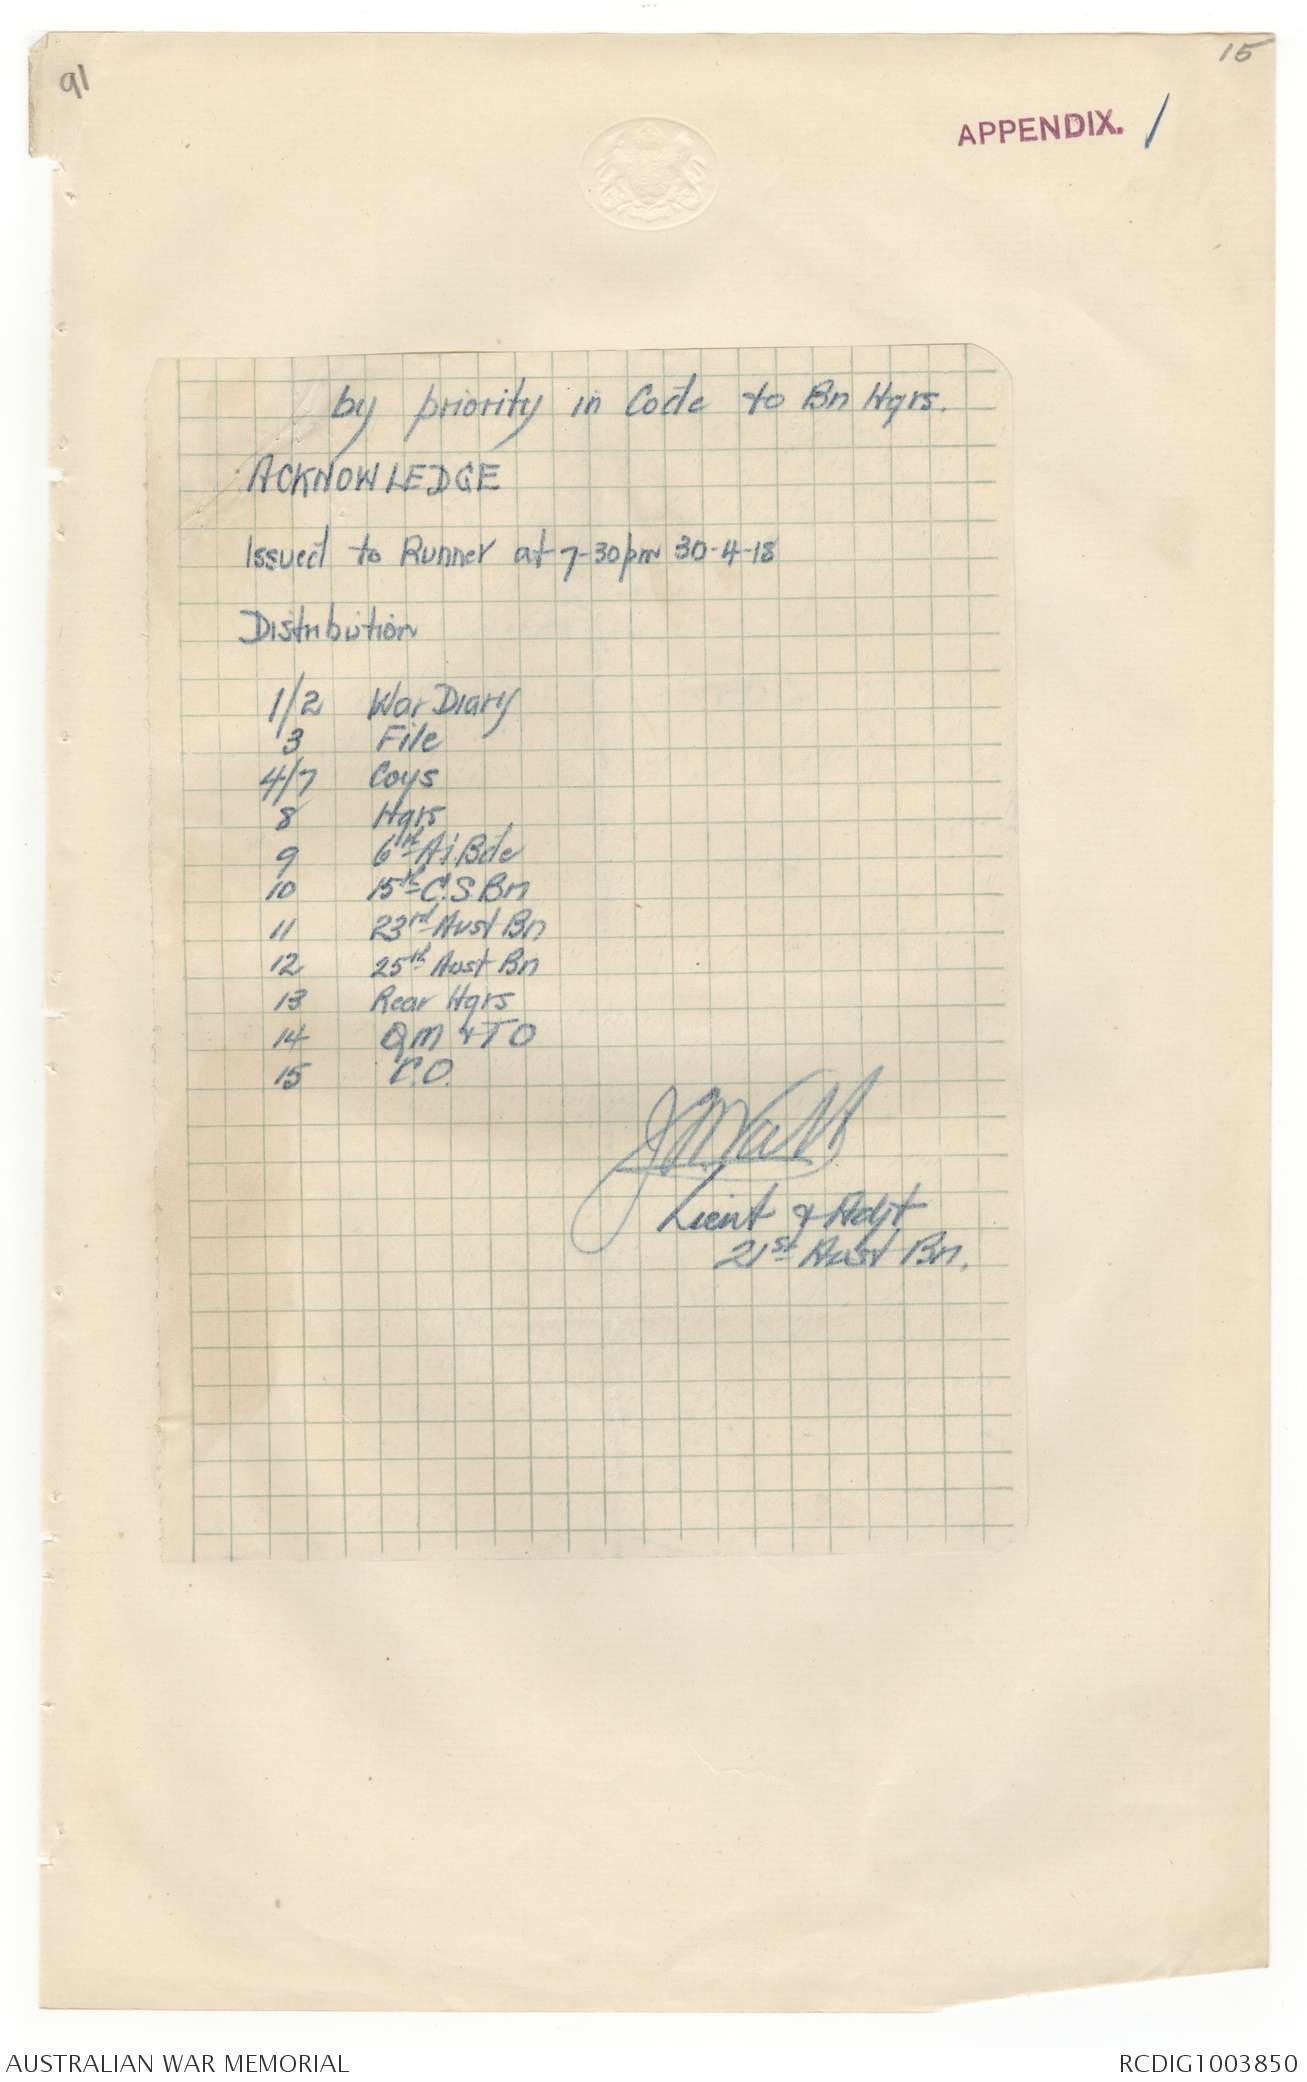 91
15
APPENDIX. 1
by priority in Code to Bn Hqrs.
ACKNOWLEDGE
Issued to Runner at 7-30pm 30-4-18
Distribution
1/2 War Diary
3 File
4/7 Coys
8 Hqrs
9 6th Bde
10 15th Bn
11 23rd Aust Bn
12 25th Aust Bn
13 Rear Hqrs
14 QM & TO
15 C.O.
Lieut & Adjt
21st Aust Bn.
AUSTRALIAN WAR MEMORIAL
RCDIG1003850